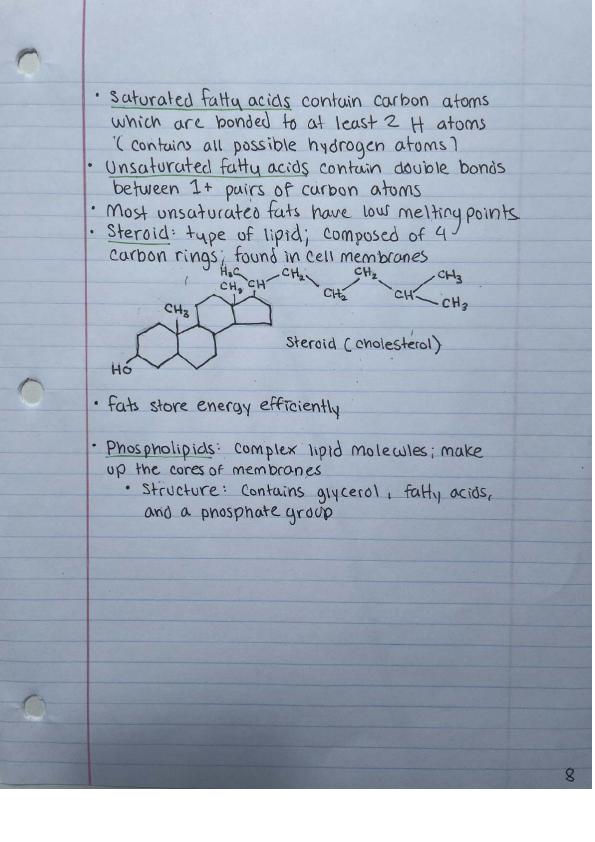 • Saturated fatty acids contain carbon atoms
which are bonded to at least 2 H atoms
(contains all possible hydrogen atoms)
• Unsaturated fatty acids contain double bonds
between 1+ pairs of carbon atoms
• Most unsaturated fats have low melting points
• Steroid: type of lipid; composed of 4
carbon rings; found in cell membranes
H₃C CH₂ CH₂ CH₃
CH₃ CH CH₂ CH CH₃
CH₃
Steroid (cholesterol)
HO
• fats store energy efficiently
• Phospholipids: complex lipid molecules; make
up the cores of membranes
• Structure: contains glycerol, fatty acids,
and a phosphate group
8